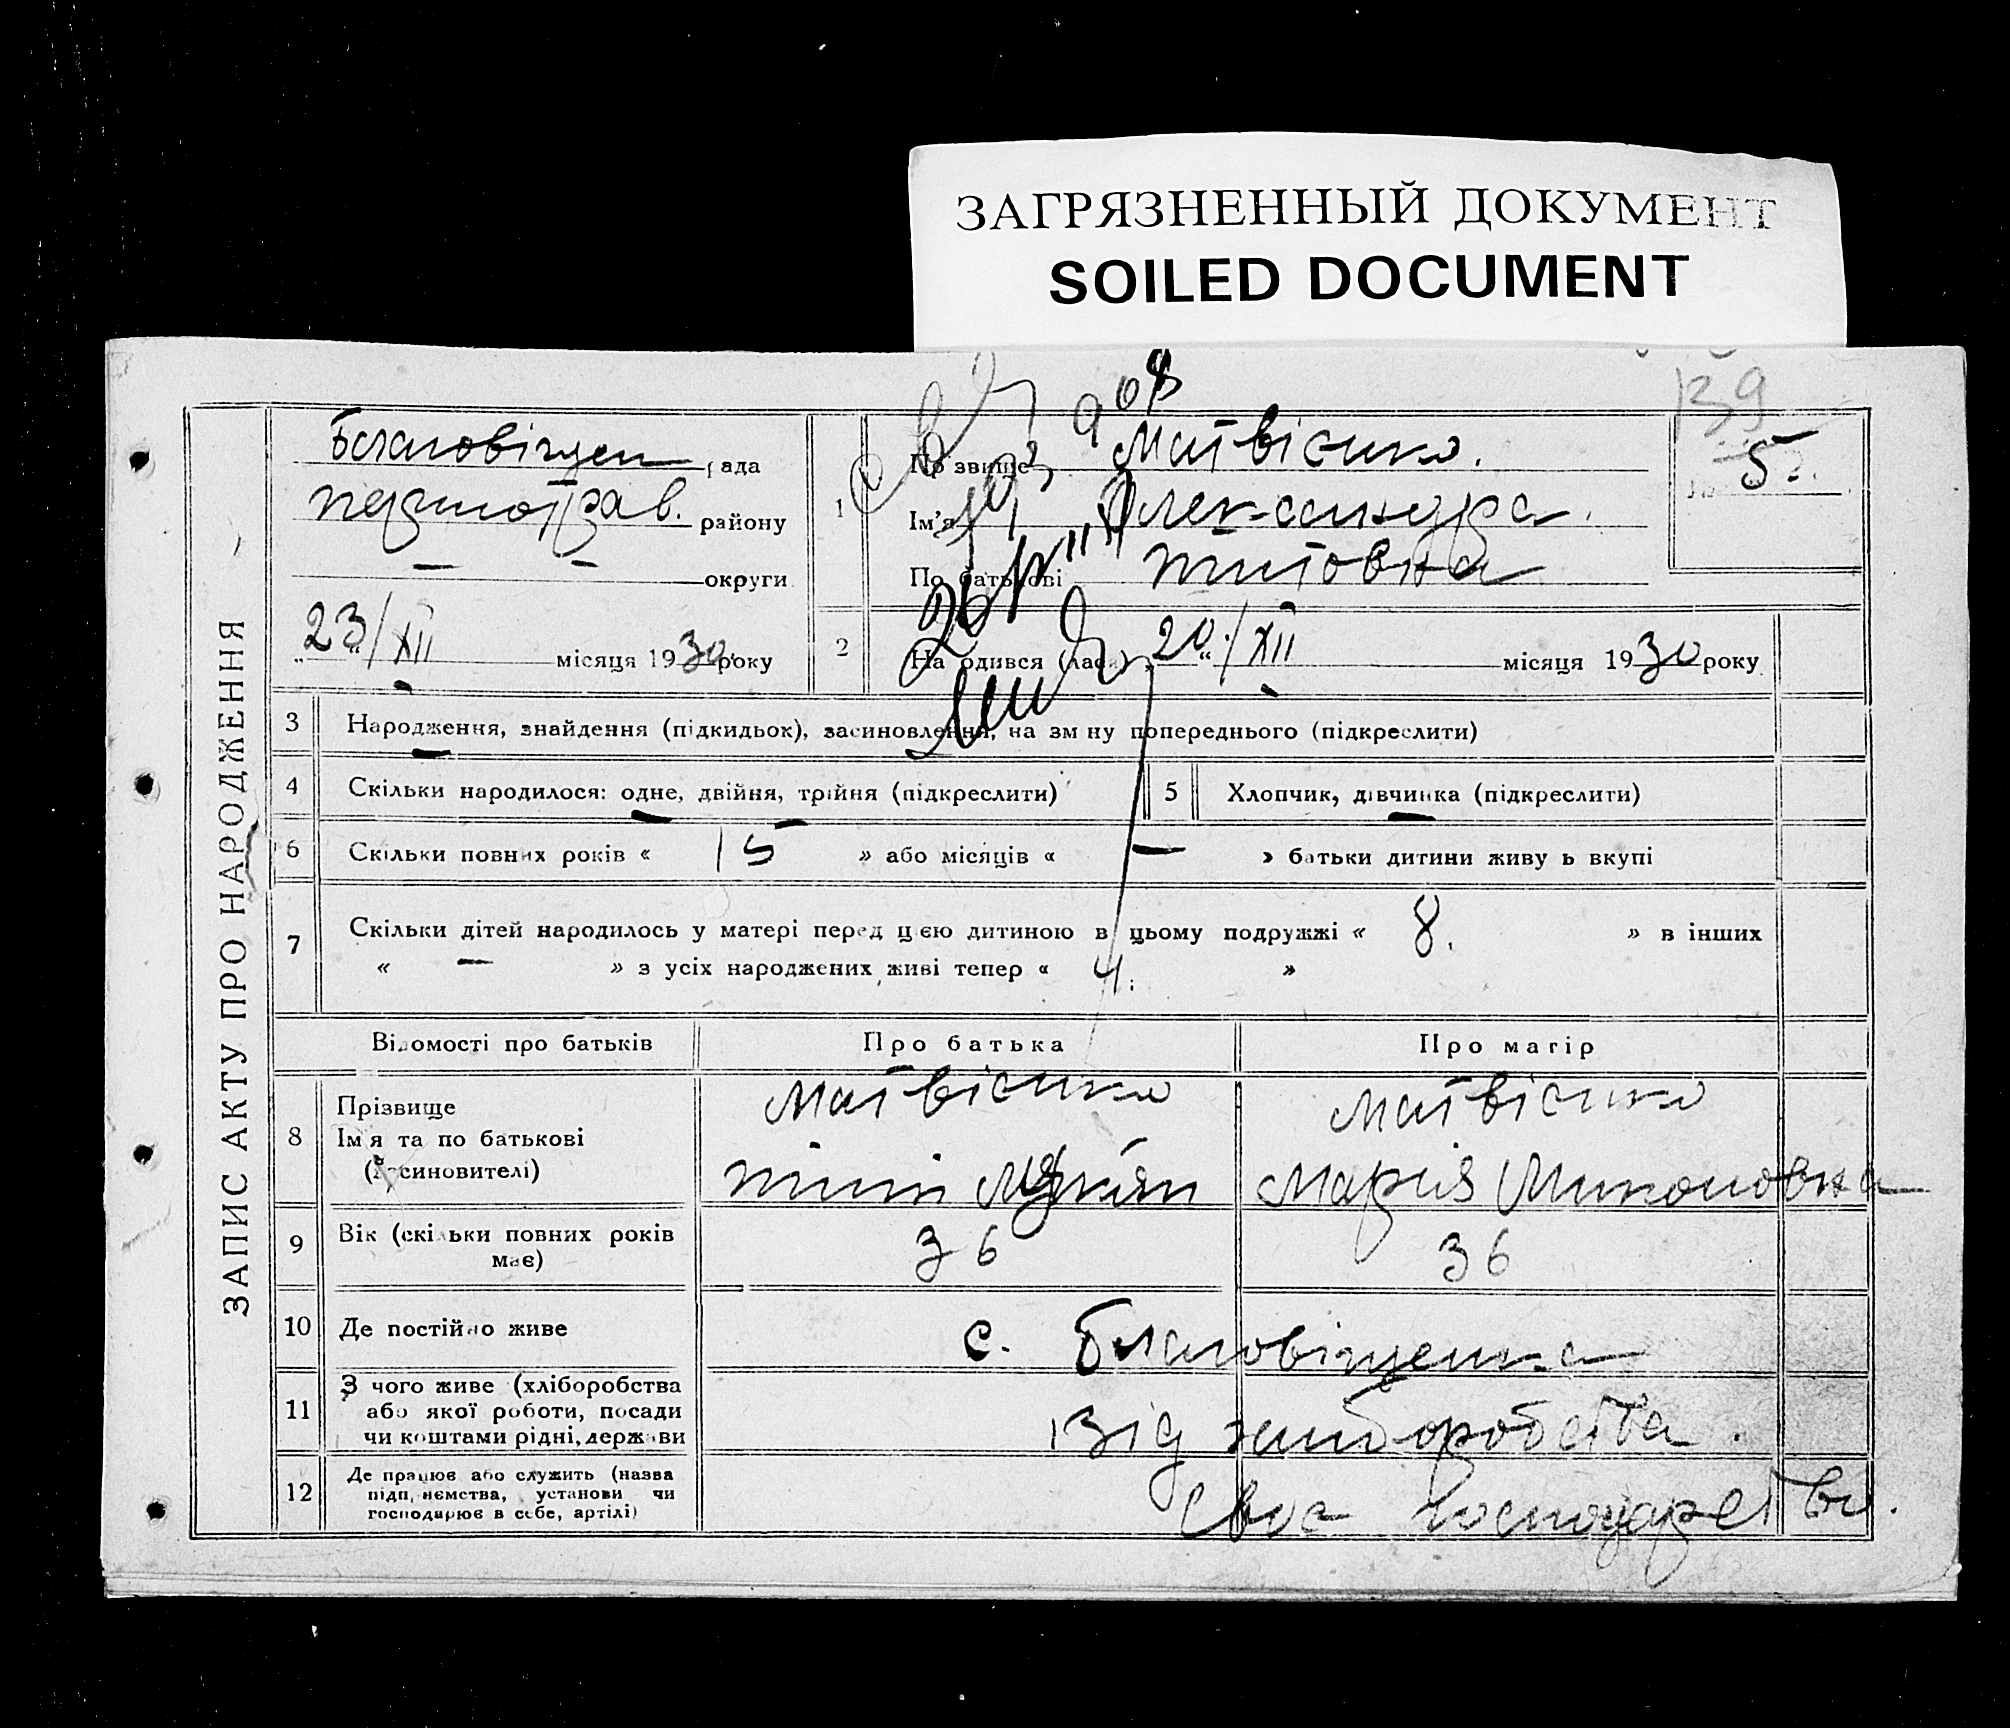 ЗАГРЯЗНЕННЫЙ ДОКУМЕНТ
SOILED DOCUMENT
139
ЗАПИС АКТУ ПРО НАРОДЖЕННЯ
Благовіщен рада
району
— — округи
23/XII місяця 1930 року
1
Прізвище Матвієнко.
Ім'я Александра.
По батькові Титовна
5
2 Народився (лася) 20/XII місяця 1930 року
3 Народження, знайдення (підкидьок), засиновлення, на зміну попереднього (підкреслити)
4 Скільки народилося: одне, двійня, трійня (підкреслити)
5 Хлопчик, дівчинка (підкреслити)
6 Скільки повних років « 15 » або місяців « — » батьки дитини живуть вкупі
7 Скільки дітей народилось у матері перед цією дитиною в цьому подружжі « 8. » в інших
« — » з усіх народжених живі тепер « 4. »
Відомості про батьків Про батька Про матір
8 Прізвище Матвієнко Матвієнко
Ім'я та по батькові Тит Марія
(Засиновителі)
9 Вік (скільки повних років 36 36
має)
10 Де постійно живе с. Благовіщенка
11 З чого живе (хліборобства
або якої роботи, посади Від хліборобства.
чи коштами рідні, держави
12 Де працює або служить (назва
підприємства, установи чи Своє господарство.
господарює в себе, артілі)